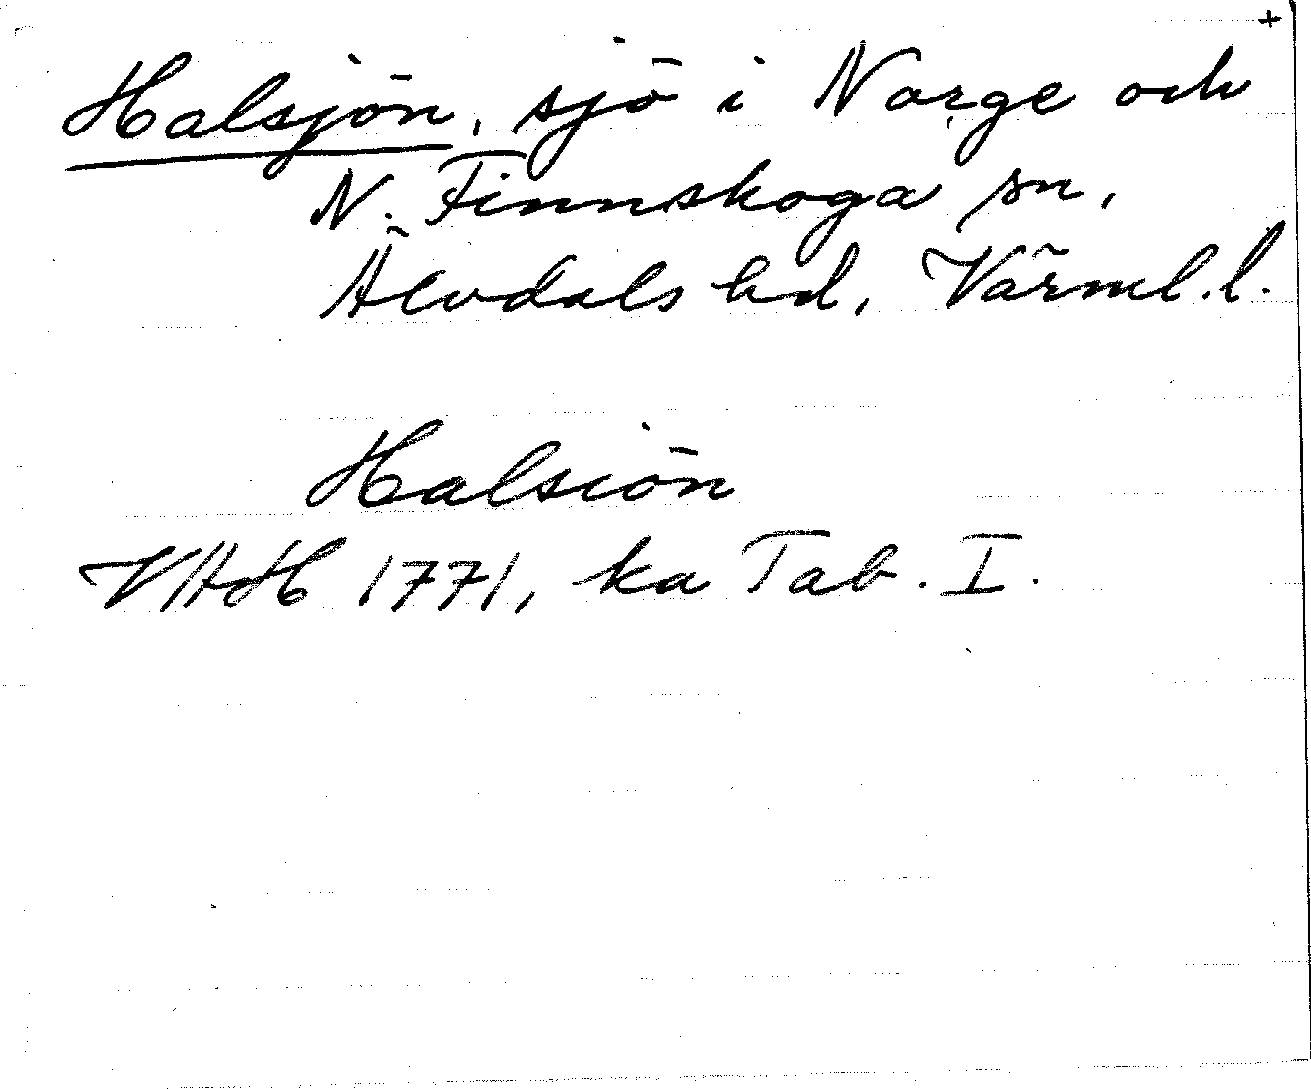 +
Halsjön, sjö i Norge och
N. Finnskoga sn,
Älvdals hd, Värml. l.
Halsiön
VAH 1771, ka Tab. I.